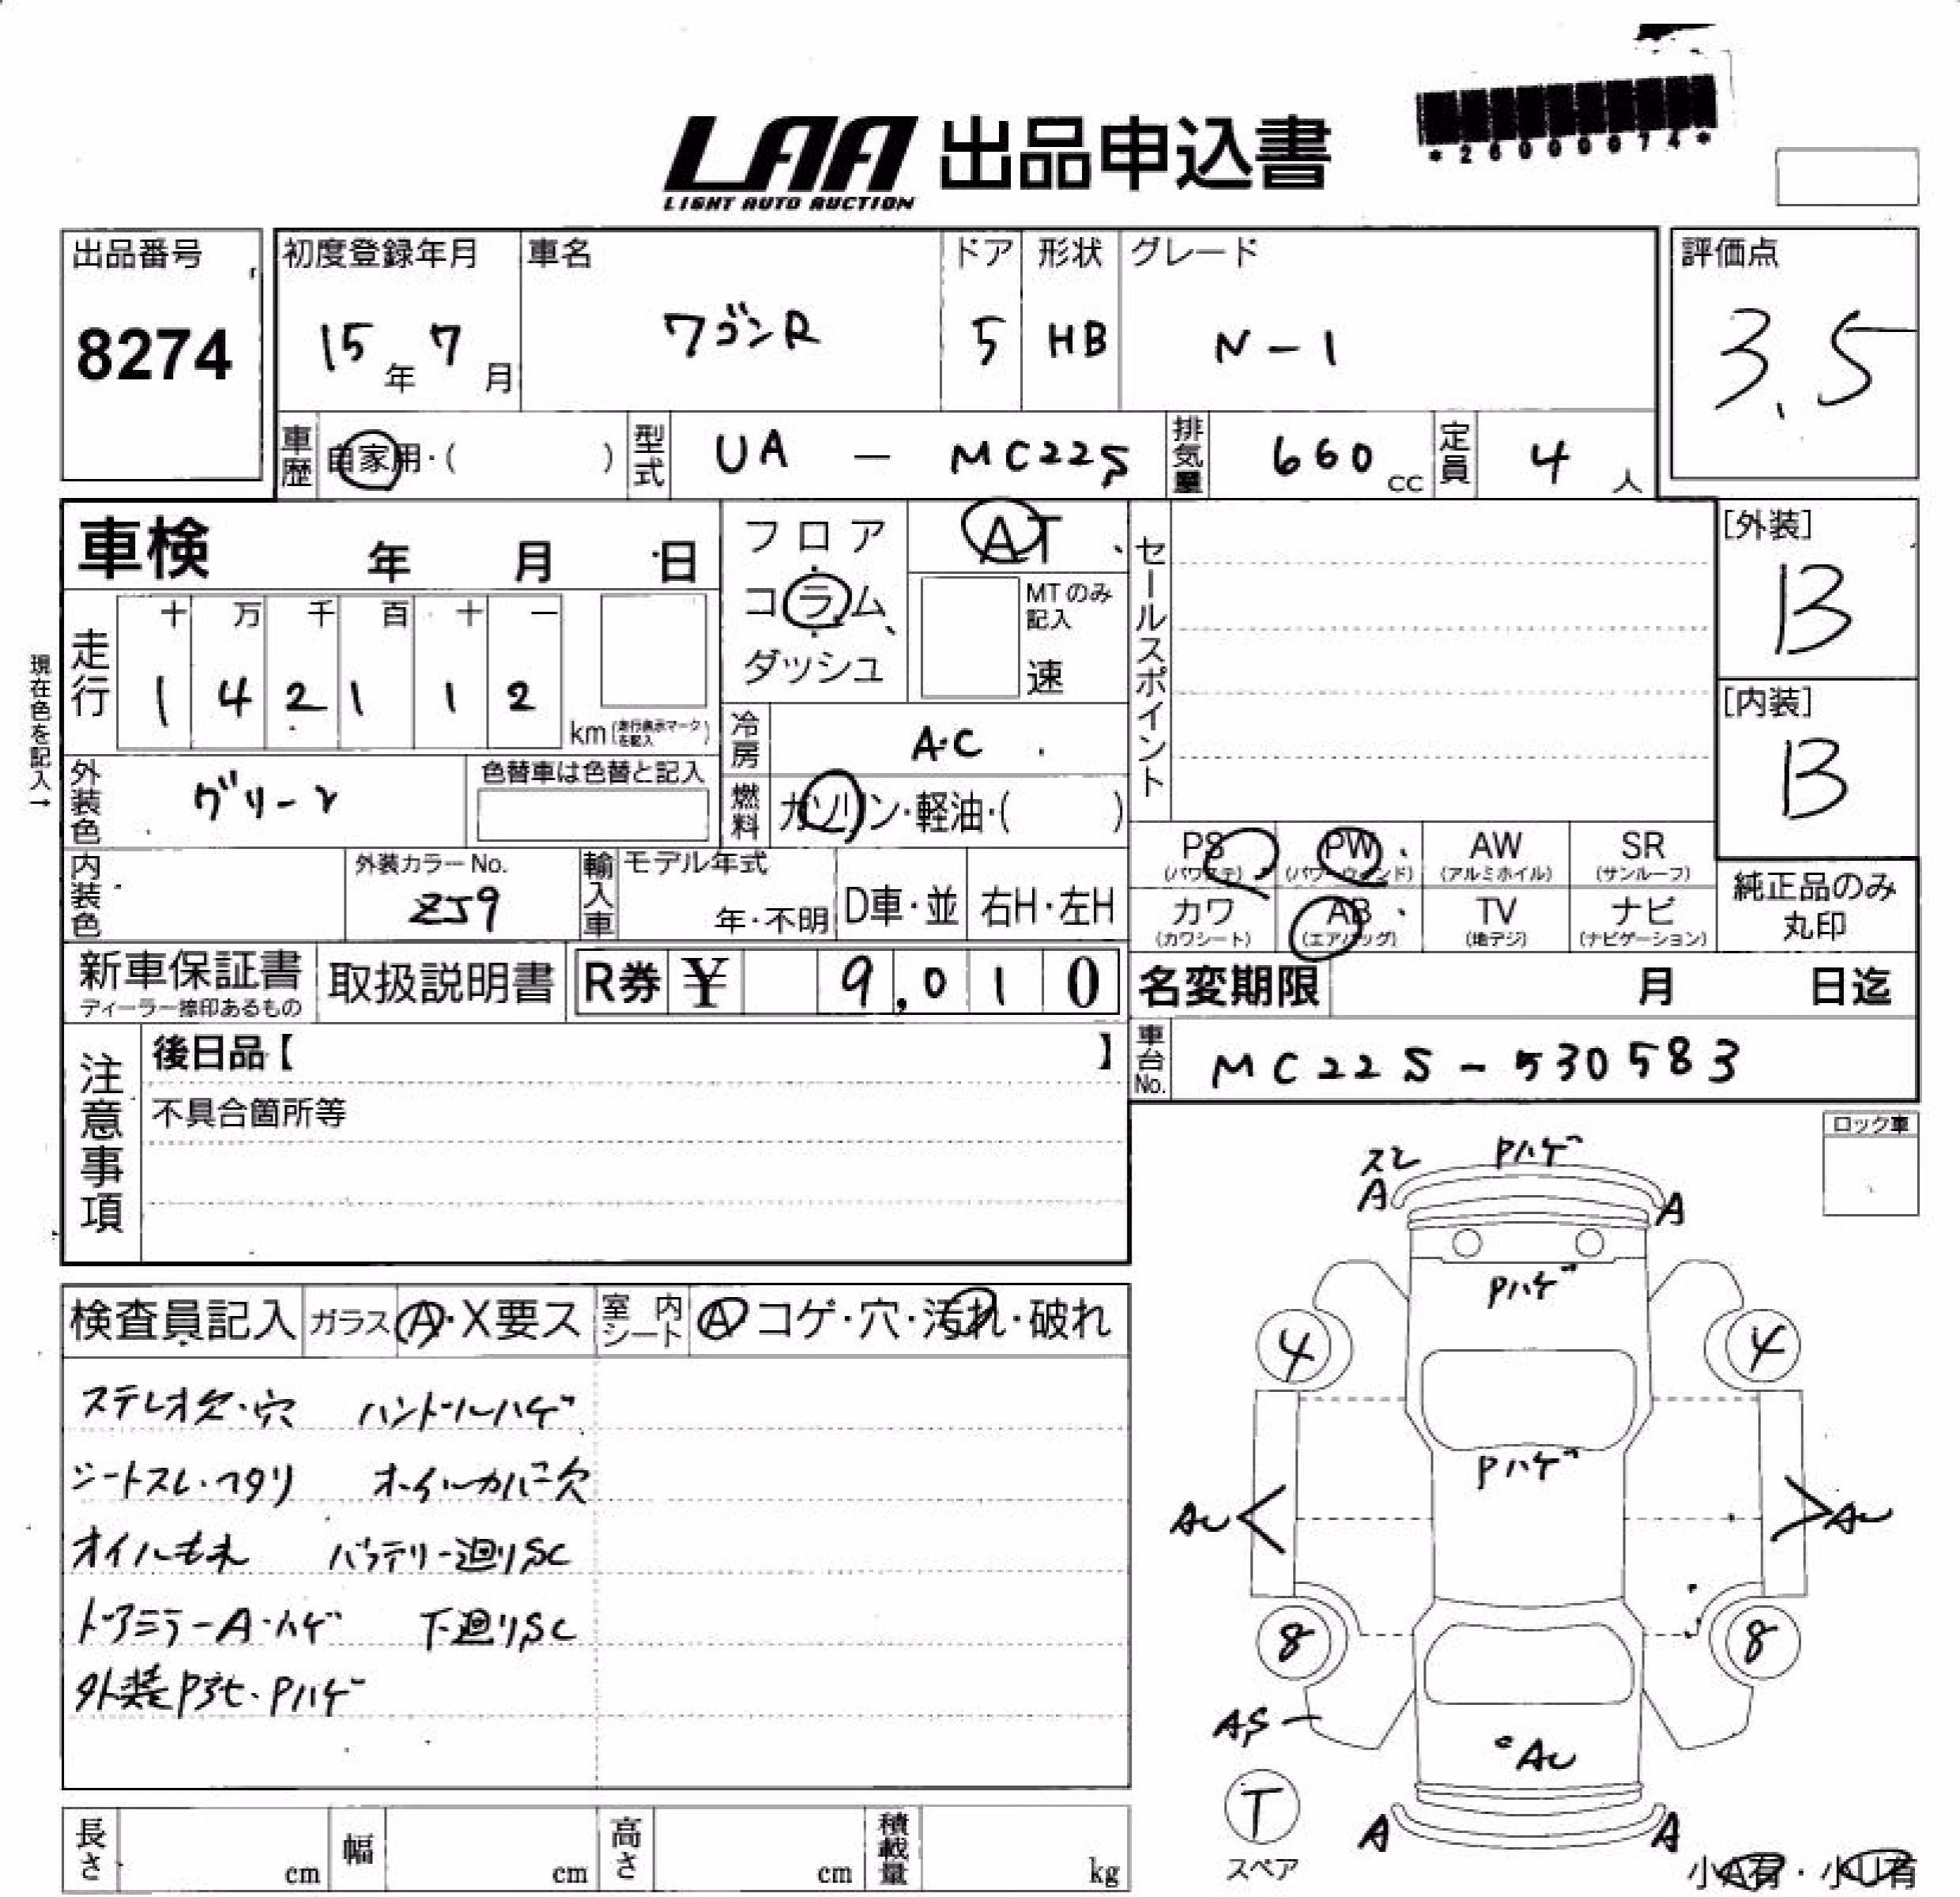 *26000074*
LAA 出品申込書
LIGHT AUTO AUCTION
出品番号 初度登録年月 車名 ドア 形状 グレード 評価点
8274 15年 7月 ワゴンR 5 HB N-1 3.5
車歴 自家用・( ) 型式 UA - MC22S 排気量 660 cc 定員 4人
車検 年 月 日 フロア AT セールスポイント [外装]
コラム MTのみ記入 B
ダッシュ 速
現在色を記入→
走行 十 万 千 百 十 一
1 4 2 1 1 2 km (走行表示マークを記入)
[内装]
冷房 A・C B
外装色 グリーン 色替車は色替と記入 燃料 ガソリン・軽油・( )
PS (パワステ) PW (パワーウィンド) AW (アルミホイル) SR (サンルーフ)
内装色 外装カラーNo. Z59 輸入車 モデル年式 年・不明 D車・並 右H・左H
カワ (カワシート) AB (エアバッグ) TV (地デジ) ナビ (ナビゲーション) 純正品のみ丸印
新車保証書 ディーラー捺印あるもの 取扱説明書 R券 ¥ 9,010 名変期限 月 日迄
注意事項 後日品【 】 車台No. MC22S-530583
不具合箇所等
ロック車
スレ Pハゲ
A A
検査員記入 ガラス A・X要ス 室内シート A コゲ・穴・汚れ・破れ
Pハゲ
4 4
ステレオ欠・穴 ハンドルハゲ
シートスレ・ヘタリ ホイールカバー欠
Pハゲ
AU AU
オイルもれ バッテリー廻りSC
ドアミラーA・ハゲ 下廻りSC
8 8
外装Pボセ・Pハゲ
AS
AU
T
A A
スペア
小A有・小U有
長さ cm 幅 cm 高さ cm 積載量 kg